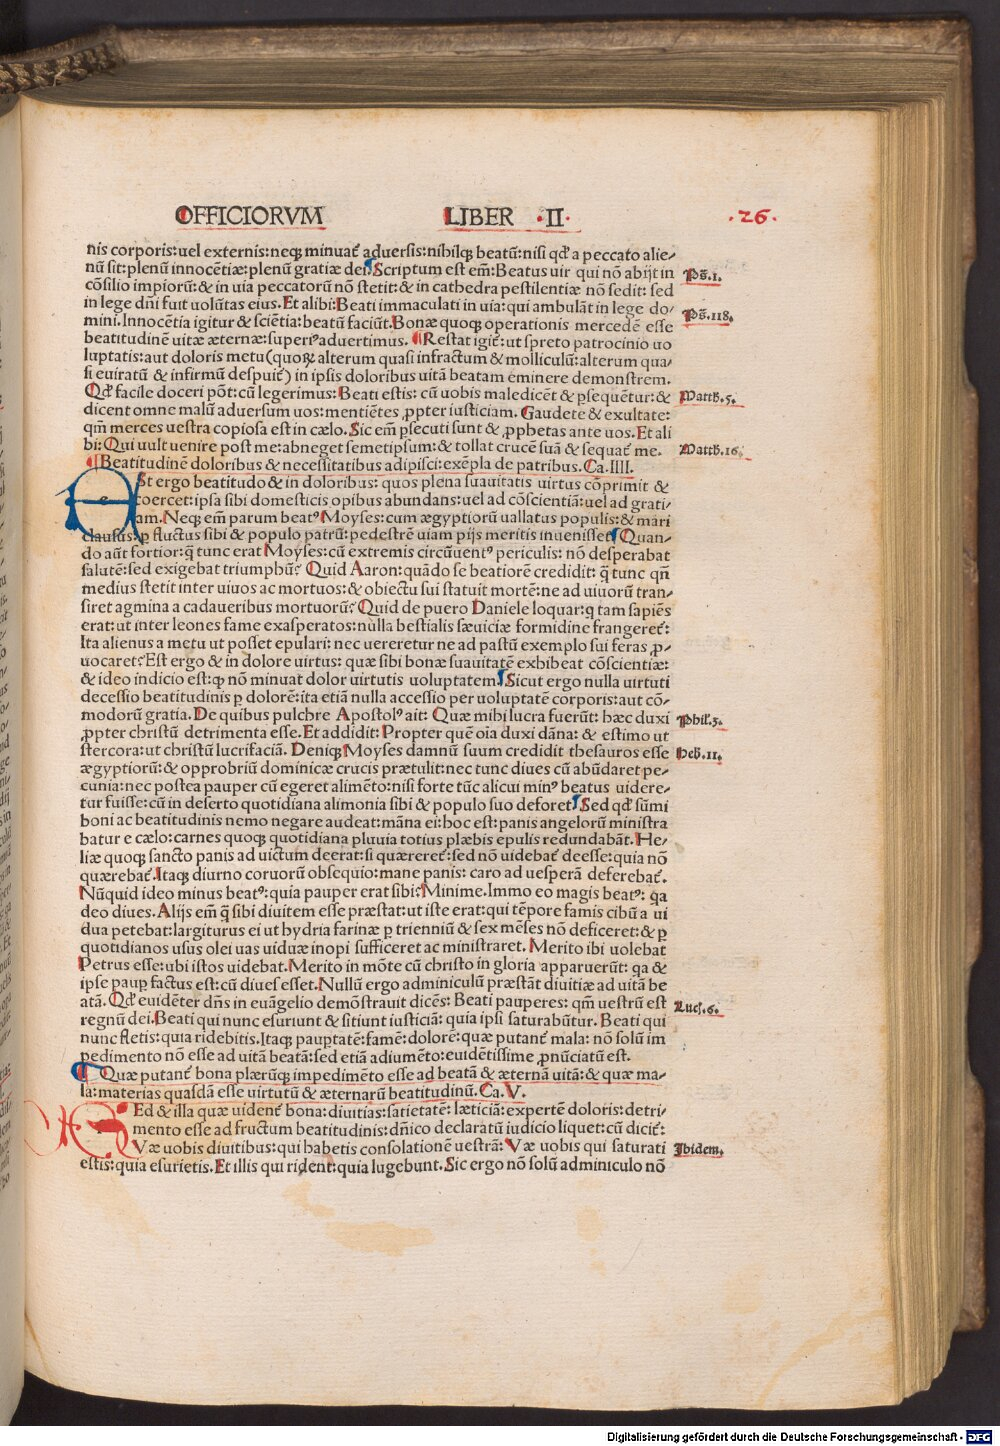 OFFICIORVM LIBER ·II· ·26·
nis corporis:uel externis:neqꝫ minuat᷑ aduersis:nihilqꝫ beatū:nisi qd̓ a peccato alie-
nū sit:plenū innocētiæ:plenū gratiæ dei. Scriptum est em̄:Beatus uir qui nō abijt in
cōsilio impiorū:& in uia peccatorū nō stetit:& in cathedra pestilentiæ nō sedit: sed
in lege dn̄i fuit uolūtas eius. Et alibi:Beati immaculati in uia:qui ambulāt in lege do-
mini.Innocētia igitur & sciētia:beatū faciūt.Bonæ quoqꝫ operationis mercedē esse
beatitudinē uitæ æternæ:superiꝰ aduertimus. Restat igit᷑:ut spreto patrocinio uo
luptatis:aut doloris metu(quoꝝ alterum quasi infractum & molliculū:alterum qua-
si euiratū & infirmū despuit᷑) in ipsis doloribus uitā beatam eminere demonstrem.
Qd̓ facile doceri pōt: cū legerimus: Beati estis: cū uobis maledicēt & ꝑsequēt᷑ur: &
dicent omne malū aduersum uos: mentiētes ꝓpter iusticiam. Gaudete & exultate:
qm̄ merces uestra copiosa est in cælo. Sic em̄ ꝑsecuti sunt & ꝓphetas ante uos. Et ali
bi: Qui uult uenire post me:abneget semetipsum: & tollat crucē suā & sequat᷑ me.
Beatitudinē doloribus & necessitatibus adipisci:exēpla de patribus. Ca.IIII.
Est ergo beatitudo & in doloribus: quos plena suauitatis virtus cōprimit &
coercet:ipsa sibi domesticis opibus abundans:uel ad cōscientiā:uel ad grati-
am. Neqꝫ em̄ parum beatꝰ Moyses: cum ægyptiorū uallatus populis:& mari
clausus: ꝑ fluctus sibi & populo patrū: pedestrē uiam pijs meritis inuenisset. Quan-
do aūt fortior: q̄ tunc erat Moyses: cū extremis circūuentꝰ periculis: nō desperabat
salutē: sed exigebat triumphū? Quid Aaron: quādo se beatiorē credidit: q̄ tunc qn̄
medius stetit inter uiuos ac mortuos: & obiectu sui statuit mortē: ne ad uiuorū tran-
siret agmina a cadaueribus mortuorū? Quid de puero Daniele loquar: q̄ tam sapiēs
erat: ut inter leones fame exasperatos: nulla bestialis sæuiciæ formidine frangeret᷑:
Ita alienus a metu ut posset epulari: nec uereretur ne ad pastū exemplo sui feras ꝓ-
uocaret? Est ergo & in dolore uirtus: quæ sibi bonæ suauitatē exhibeat cōscientiæ:
& ideo indicio est: ꝙ nō minuat dolor uirtutis uoluptatem. Sicut ergo nulla uirtuti
decessio beatitudinis ꝑ dolorē: ita etiā nulla accessio per uoluptatē corporis: aut cō-
modorū gratia. De quibus pulchre Apostolꝰ ait: Quæ mihi lucra fuerūt: hæc duxi
ꝓpter christū detrimenta esse. Et addidit: Propter quē oīa duxi dāna: & estimo ut
stercora: ut christū lucrifaciā. Deniqꝫ Moyses damnū suum credidit thesauros esse
ægyptiorū: & opprobriū dominicæ crucis prætulit: nec tunc diues cū abūdaret pe-
cunia: nec postea pauper cū egeret alimēto: nisi forte tūc alicui minꝰ beatus uidere-
tur fuisse: cū in deserto quotidiana alimonia sibi & populo suo deforet. Sed qd̓ sūmi
boni ac beatitudinis nemo negare audeat: māna ei: hoc est: panis angelorū ministra
batur e cælo: carnes quoqꝫ quotidiana pluuia totius plæbis epulis redundabāt. He-
liæ quoqꝫ sancto panis ad uictum deerat: si quæreret᷑: sed nō uidebat᷑ deesse: quia nō
quærebat᷑. Itaqꝫ diurno coruorū obsequio: mane panis: caro ad uesperā deferebat᷑.
Nūquid ideo minus beatꝰ: quia pauper erat sibi? Minime. Immo eo magis beatꝰ: qa
deo diues. Alijs em̄ q̄ sibi diuitem esse præstat: ut iste erat: qui tēpore famis cibū a ui
dua petebat: largiturus ei ut hydria farinæ ꝑ trienniū & sex mēses nō deficeret: & ꝑ
quotidianos usus olei uas uiduæ inopi sufficeret ac ministraret. Merito ibi uolebat
Petrus esse: ubi istos uidebat. Merito in mōte cū christo in gloria apparuerūt: qa &
ipse pauꝑ factus est: cū diues esset. Nullū ergo adminiculū præstāt diuitiæ ad uitā be
atā. Qd̓ euidēter dn̄s in euāgelio demōstrauit dicēs: Beati pauperes: qm̄ uestrū est
regnū dei. Beati qui nunc esuriunt & sitiunt iusticiā: quia ipsi saturabūtur. Beati qui
nunc fletis: quia ridebitis. Itaqꝫ pauꝑtatē: famē: dolorē: quæ putant᷑ mala: nō solū im
pedimento nō esse ad uitā beatā: sed etiā adiumēto: euidētissime ꝓnūciatū est.
Quæ putant᷑ bona plærūqꝫ impedimēto esse ad beatā & æternā uitā: & quæ ma-
la: materias quasdā esse uirtutū & æternarū beatitudinū. Ca.V.
Sed & illa quæ uident᷑ bona: diuitias: satietatē: læticiā: expertē doloris: detri-
mento esse ad fructum beatitudinis: dn̄ico declaratū iudicio liquet: cū dicit᷑:
Væ uobis diuitibus: qui habetis consolationē uestrā: Væ uobis qui saturati
estis: quia esurietis. Et illis qui rident: quia lugebunt. Sic ergo nō solū adminiculo nō
Ps̄.1.
Ps̄.118.
Matth.5.
Matth.16.
Phil.3.
Heb.11.
Luc.6.
Ibidem.
Digitalisierung gefördert durch die Deutsche Forschungsgemeinschaft - DFG